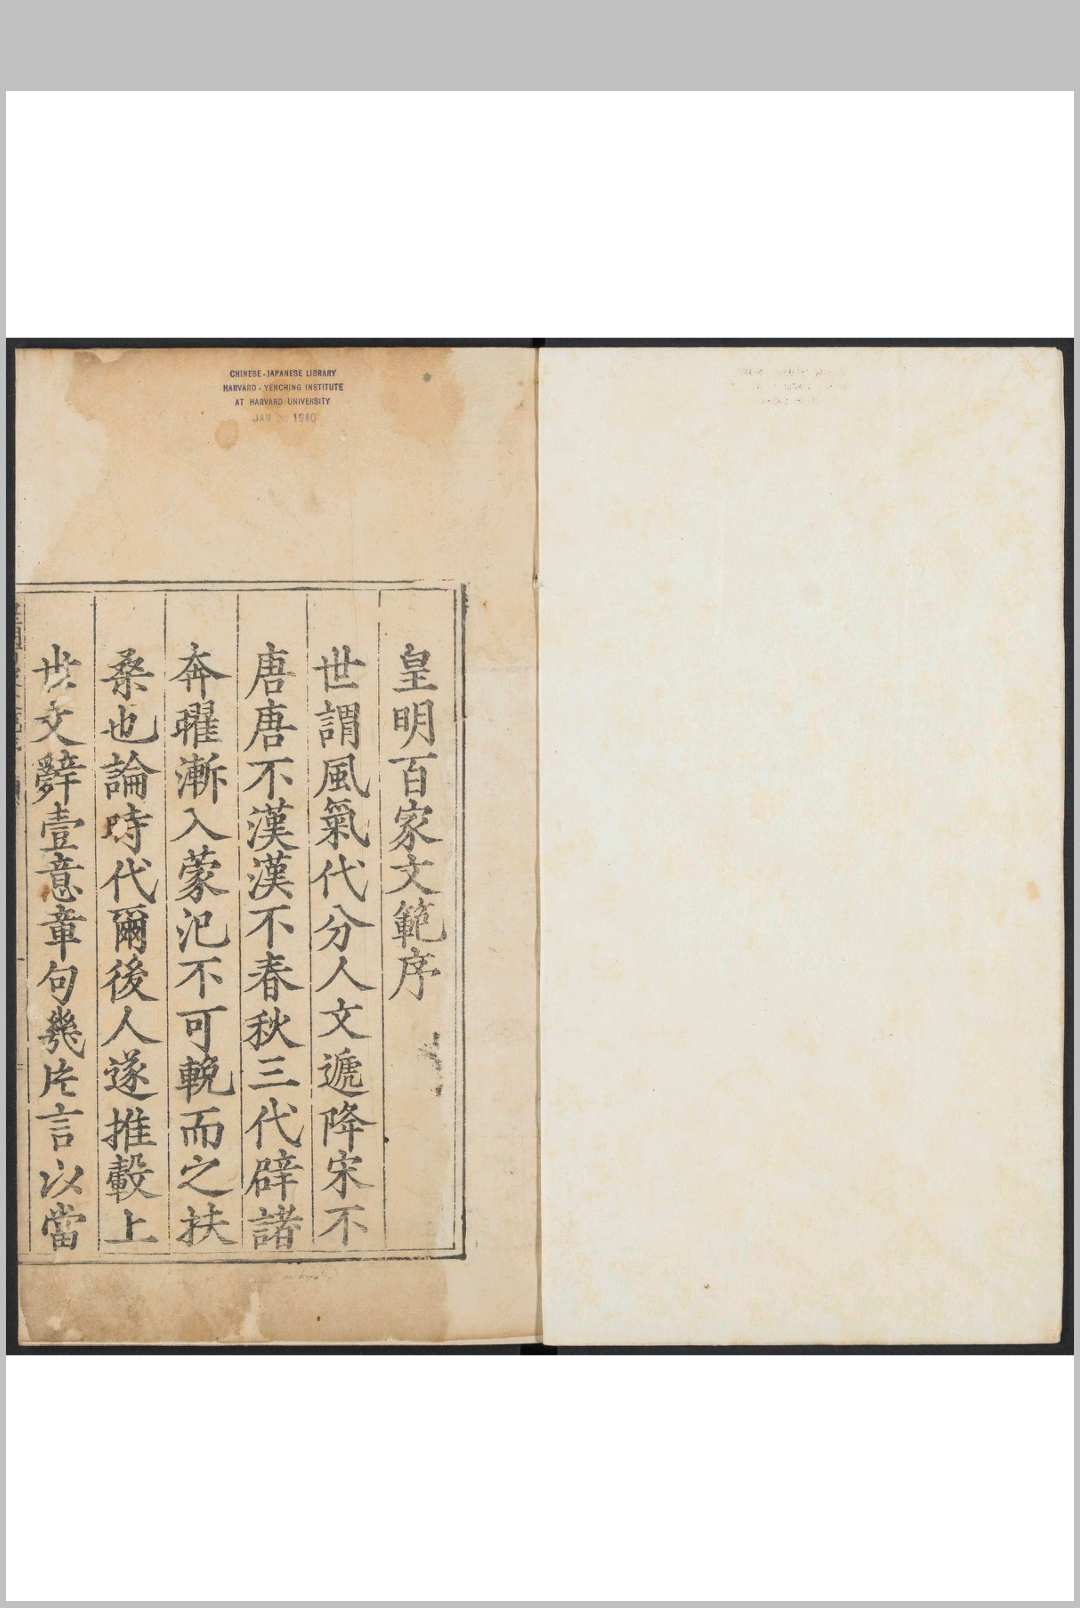 CHINESE-JAPANESE LIBRARY
HARVARD-YENCHING INSTITUTE
AT HARVARD UNIVERSITY
JAN 1940
皇明百家文範序
世謂風氣代分人文遞降宋不
唐唐不漢漢不春秋三代辟諸
奔曜漸入蒙汜不可輓而之扶
桑也論時代爾後人遂推轂上
世文辭壹意章句幾片言以當